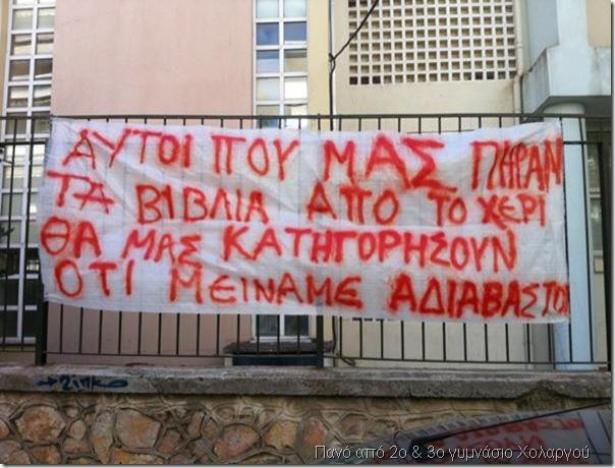 ΑΥΤΟΙ ΠΟΥ ΜΑΣ ΠΗΡΑΝ
ΤΑ ΒΙΒΛΙΑ ΑΠΟ ΤΟ ΧΕΡΙ
ΘΑ ΜΑΣ ΚΑΤΗΓΟΡΗΣΟΥΝ
ΟΤΙ ΜΕΙΝΑΜΕ ΑΔΙΑΒΑΣΤΟΙ
Πανό από 2ο & 3ο γυμνάσιο Χολαργού